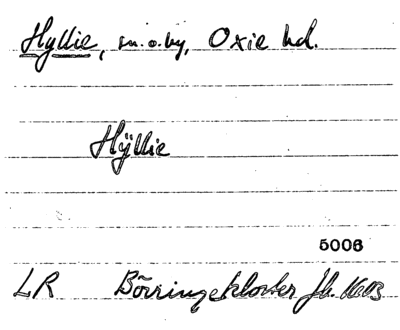 Hyllie, sn. o. by, Oxie hd.
Hÿllie
5006
LR Börringekloster Jb.